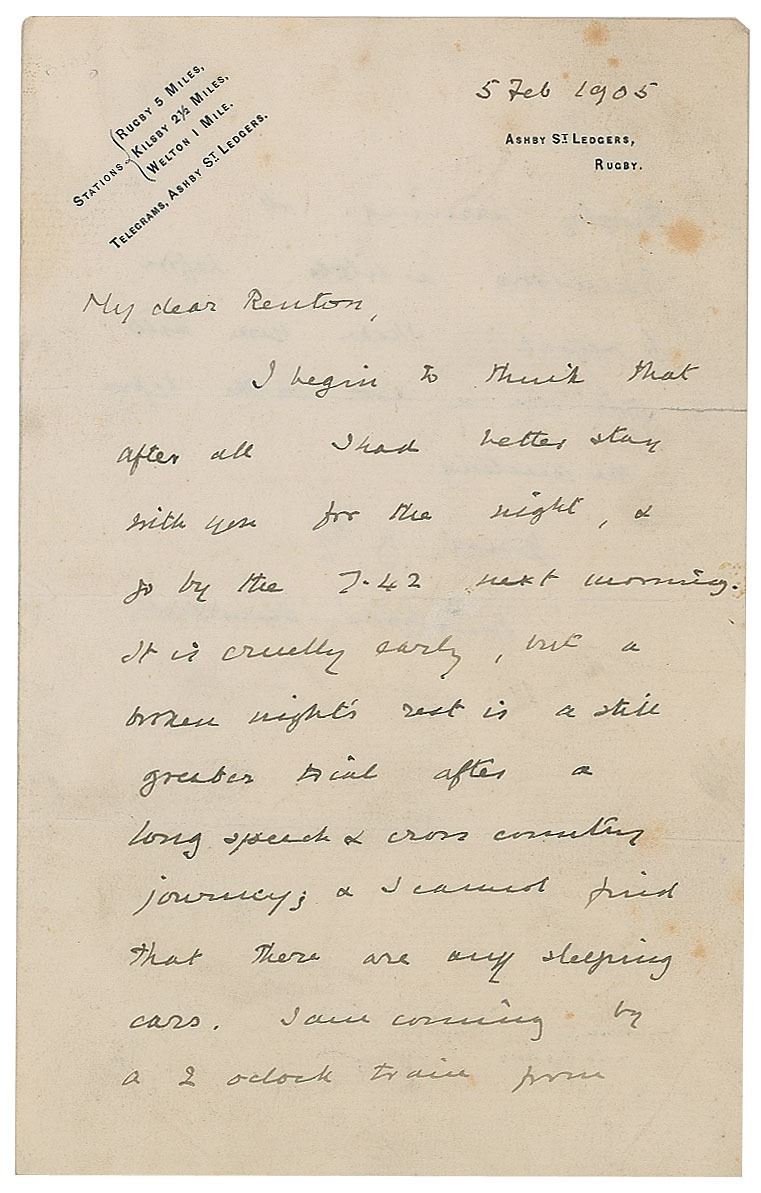 STATIONS { RUGBY 5 MILES,
KILSBY 2½ MILES,
WELTON 1 MILE.
TELEGRAMS, ASHBY ST LEDGERS.
5 Feb 1905
ASHBY ST LEDGERS,
RUGBY.
My dear Renton,
I begin to think that
after all I had better stay
with you for the night, &
go by the 7.42 next morning.
It is cruelly early, but a
broken night's rest is a still
greater trial after a
long speech & cross country
journey; & I cannot find
that there are any sleeping
cars. I am coming by
a 2 oclock train from